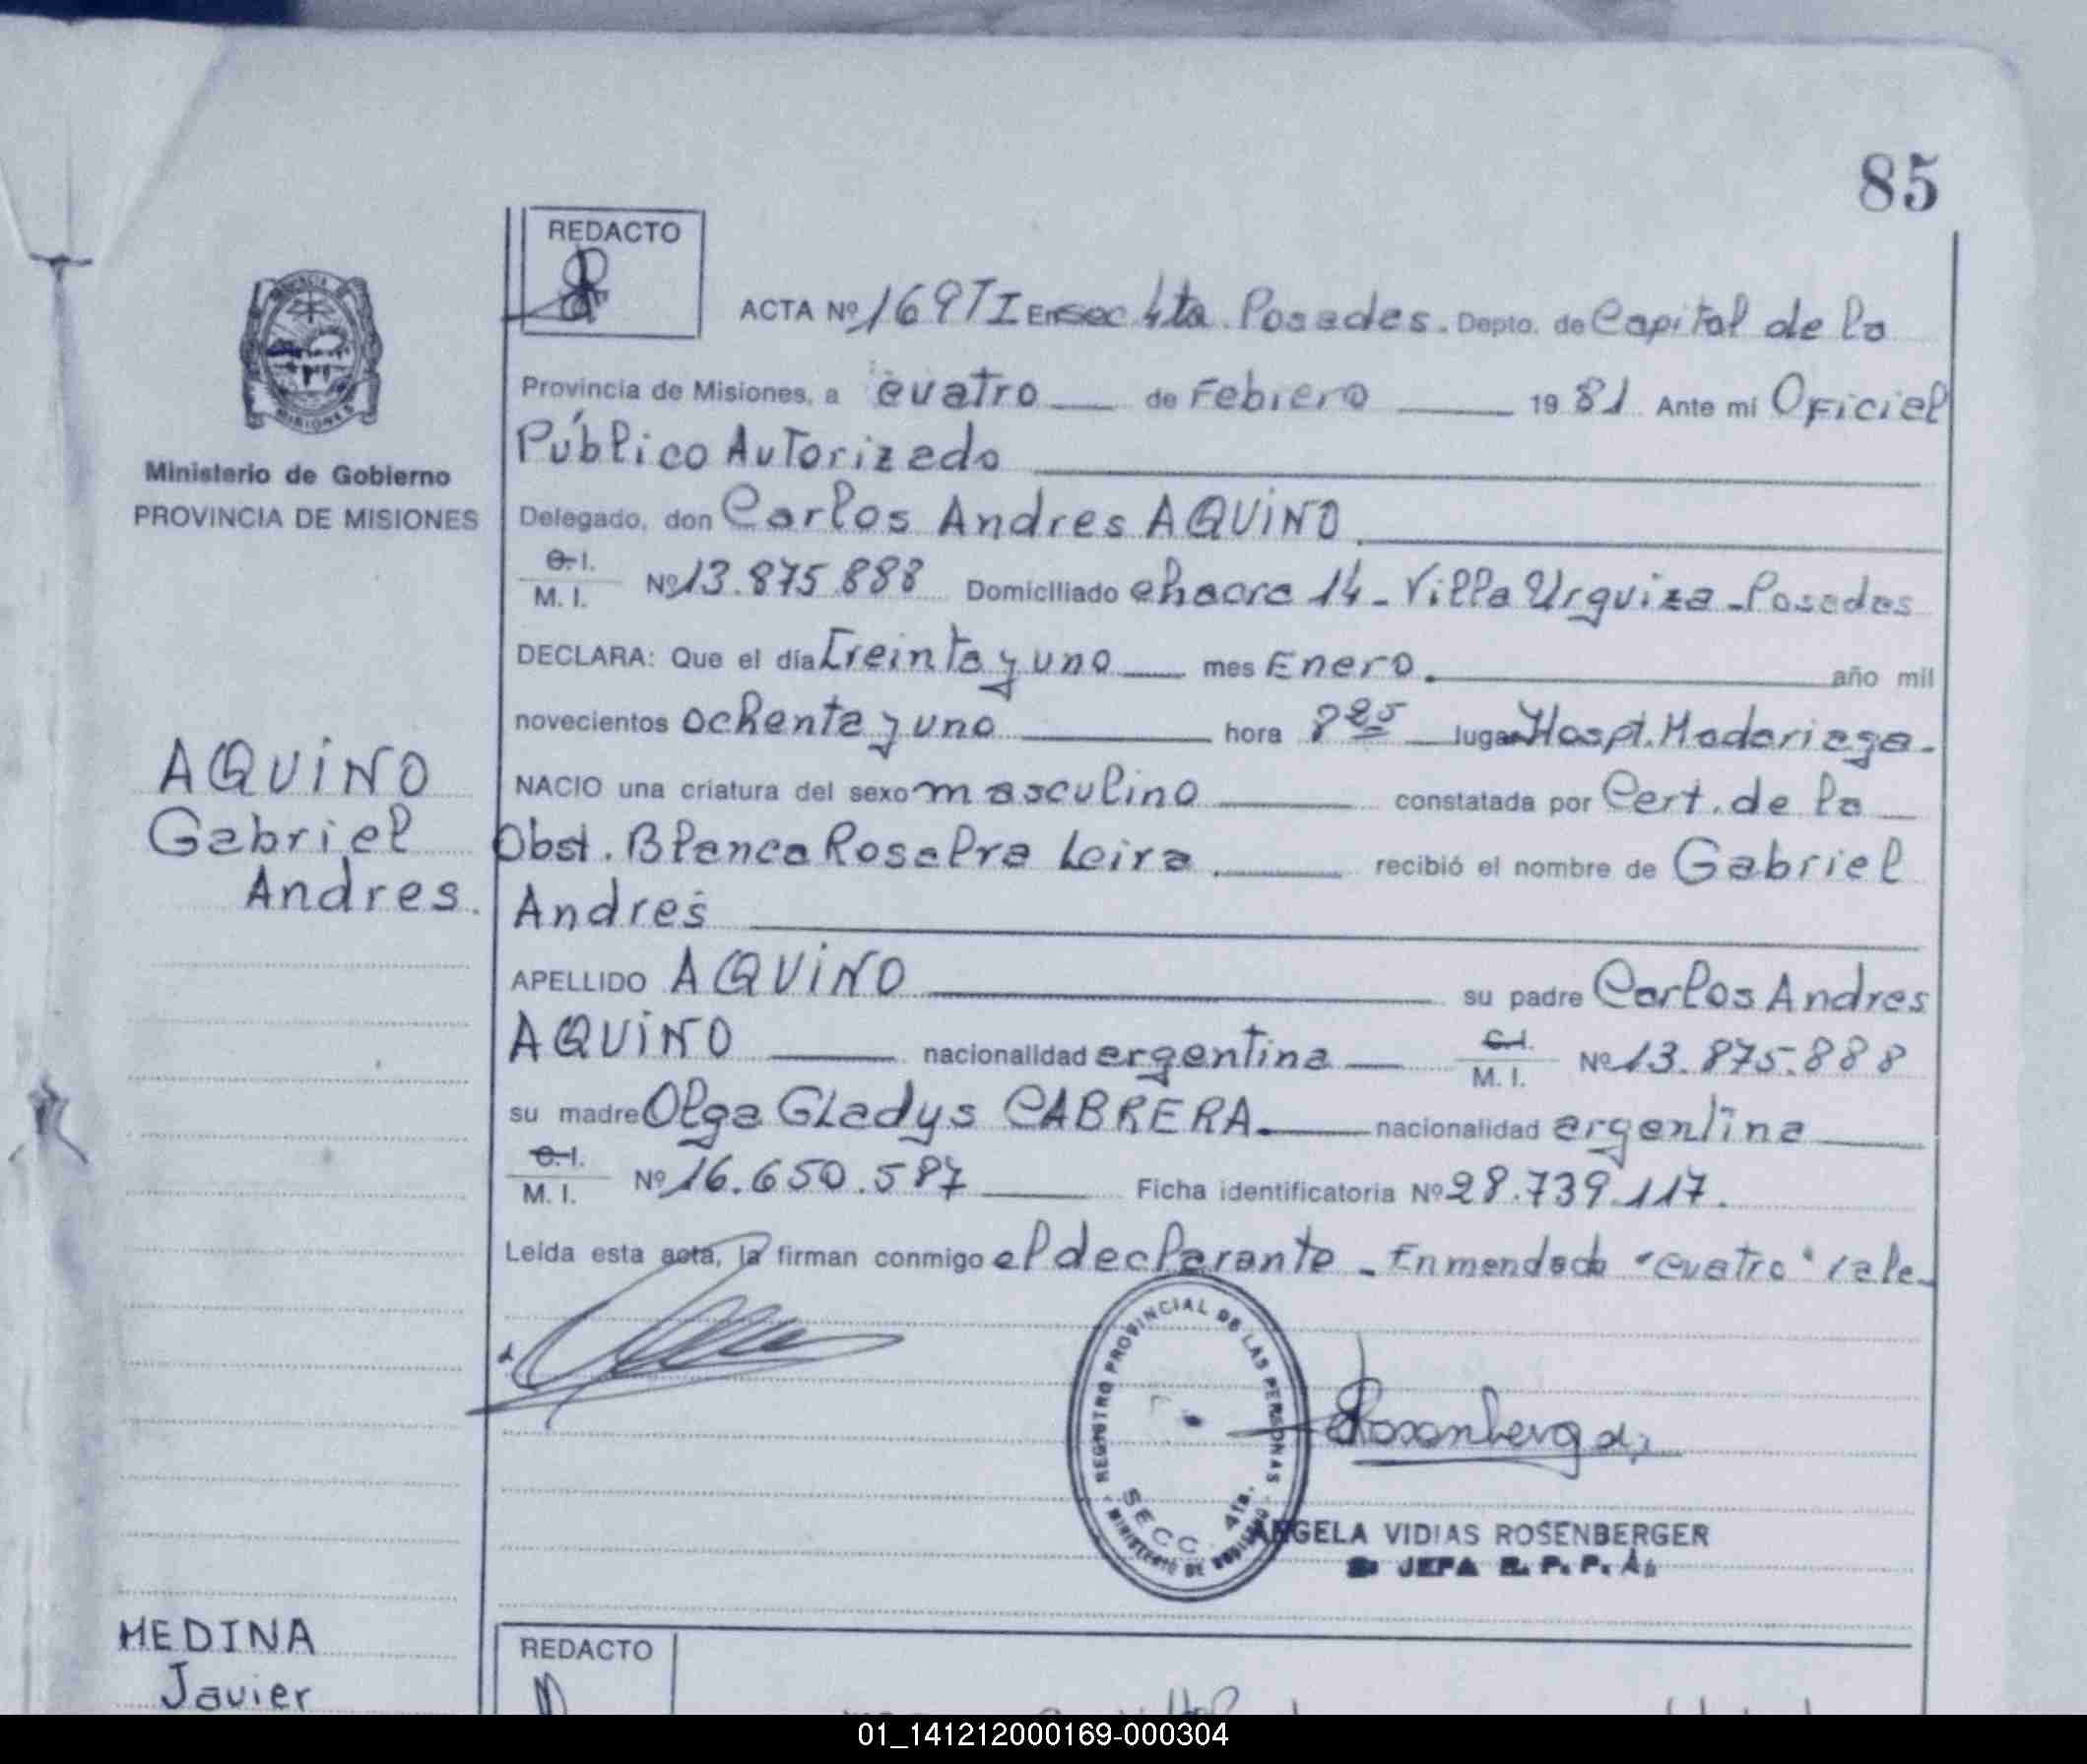 85
REDACTO
ACTA Nº 169 T I En sec 4ta. Posadas. Depto. de Capital de la
Provincia de Misiones, a cuatro de Febrero 1981 Ante mi Oficial
Público Autorizado
Delegado, don Carlos Andres AQUINO
C.I. M.I. Nº 13.875.888 Domiciliado chacra 14 - Villa Urquiza - Posadas
DECLARA: Que el día Treinta y uno mes Enero. año mil
novecientos ochenta y uno hora 8 25 lugar Hospt. Madariaga.
NACIO una criatura del sexo masculino constatada por Cert. de la
Obst. Blanca Rosalra Leira recibió el nombre de Gabriel
Andres
APELLIDO AQUINO su padre Carlos Andres
AQUINO nacionalidad argentina C.I. M.I. Nº 13.875.888
su madre Olga Gladys CABRERA. nacionalidad argentina
C.I. M.I. Nº 16.650.587 Ficha identificatoria Nº 28.739.117.
Leída esta acta, la firman conmigo el declarante - Enmendado "cuatro" vale-
Ministerio de Gobierno
PROVINCIA DE MISIONES
AQUINO
Gabriel
Andres.
REGISTRO PROVINCIAL DE LAS PERSONAS
SECC. 4ta.
MINISTERIO DE GOBIERNO
ANGELA VIDIAS ROSENBERGER
JEFA R. P. P. A.
MEDINA
Javier
REDACTO
01_141212000169-000304